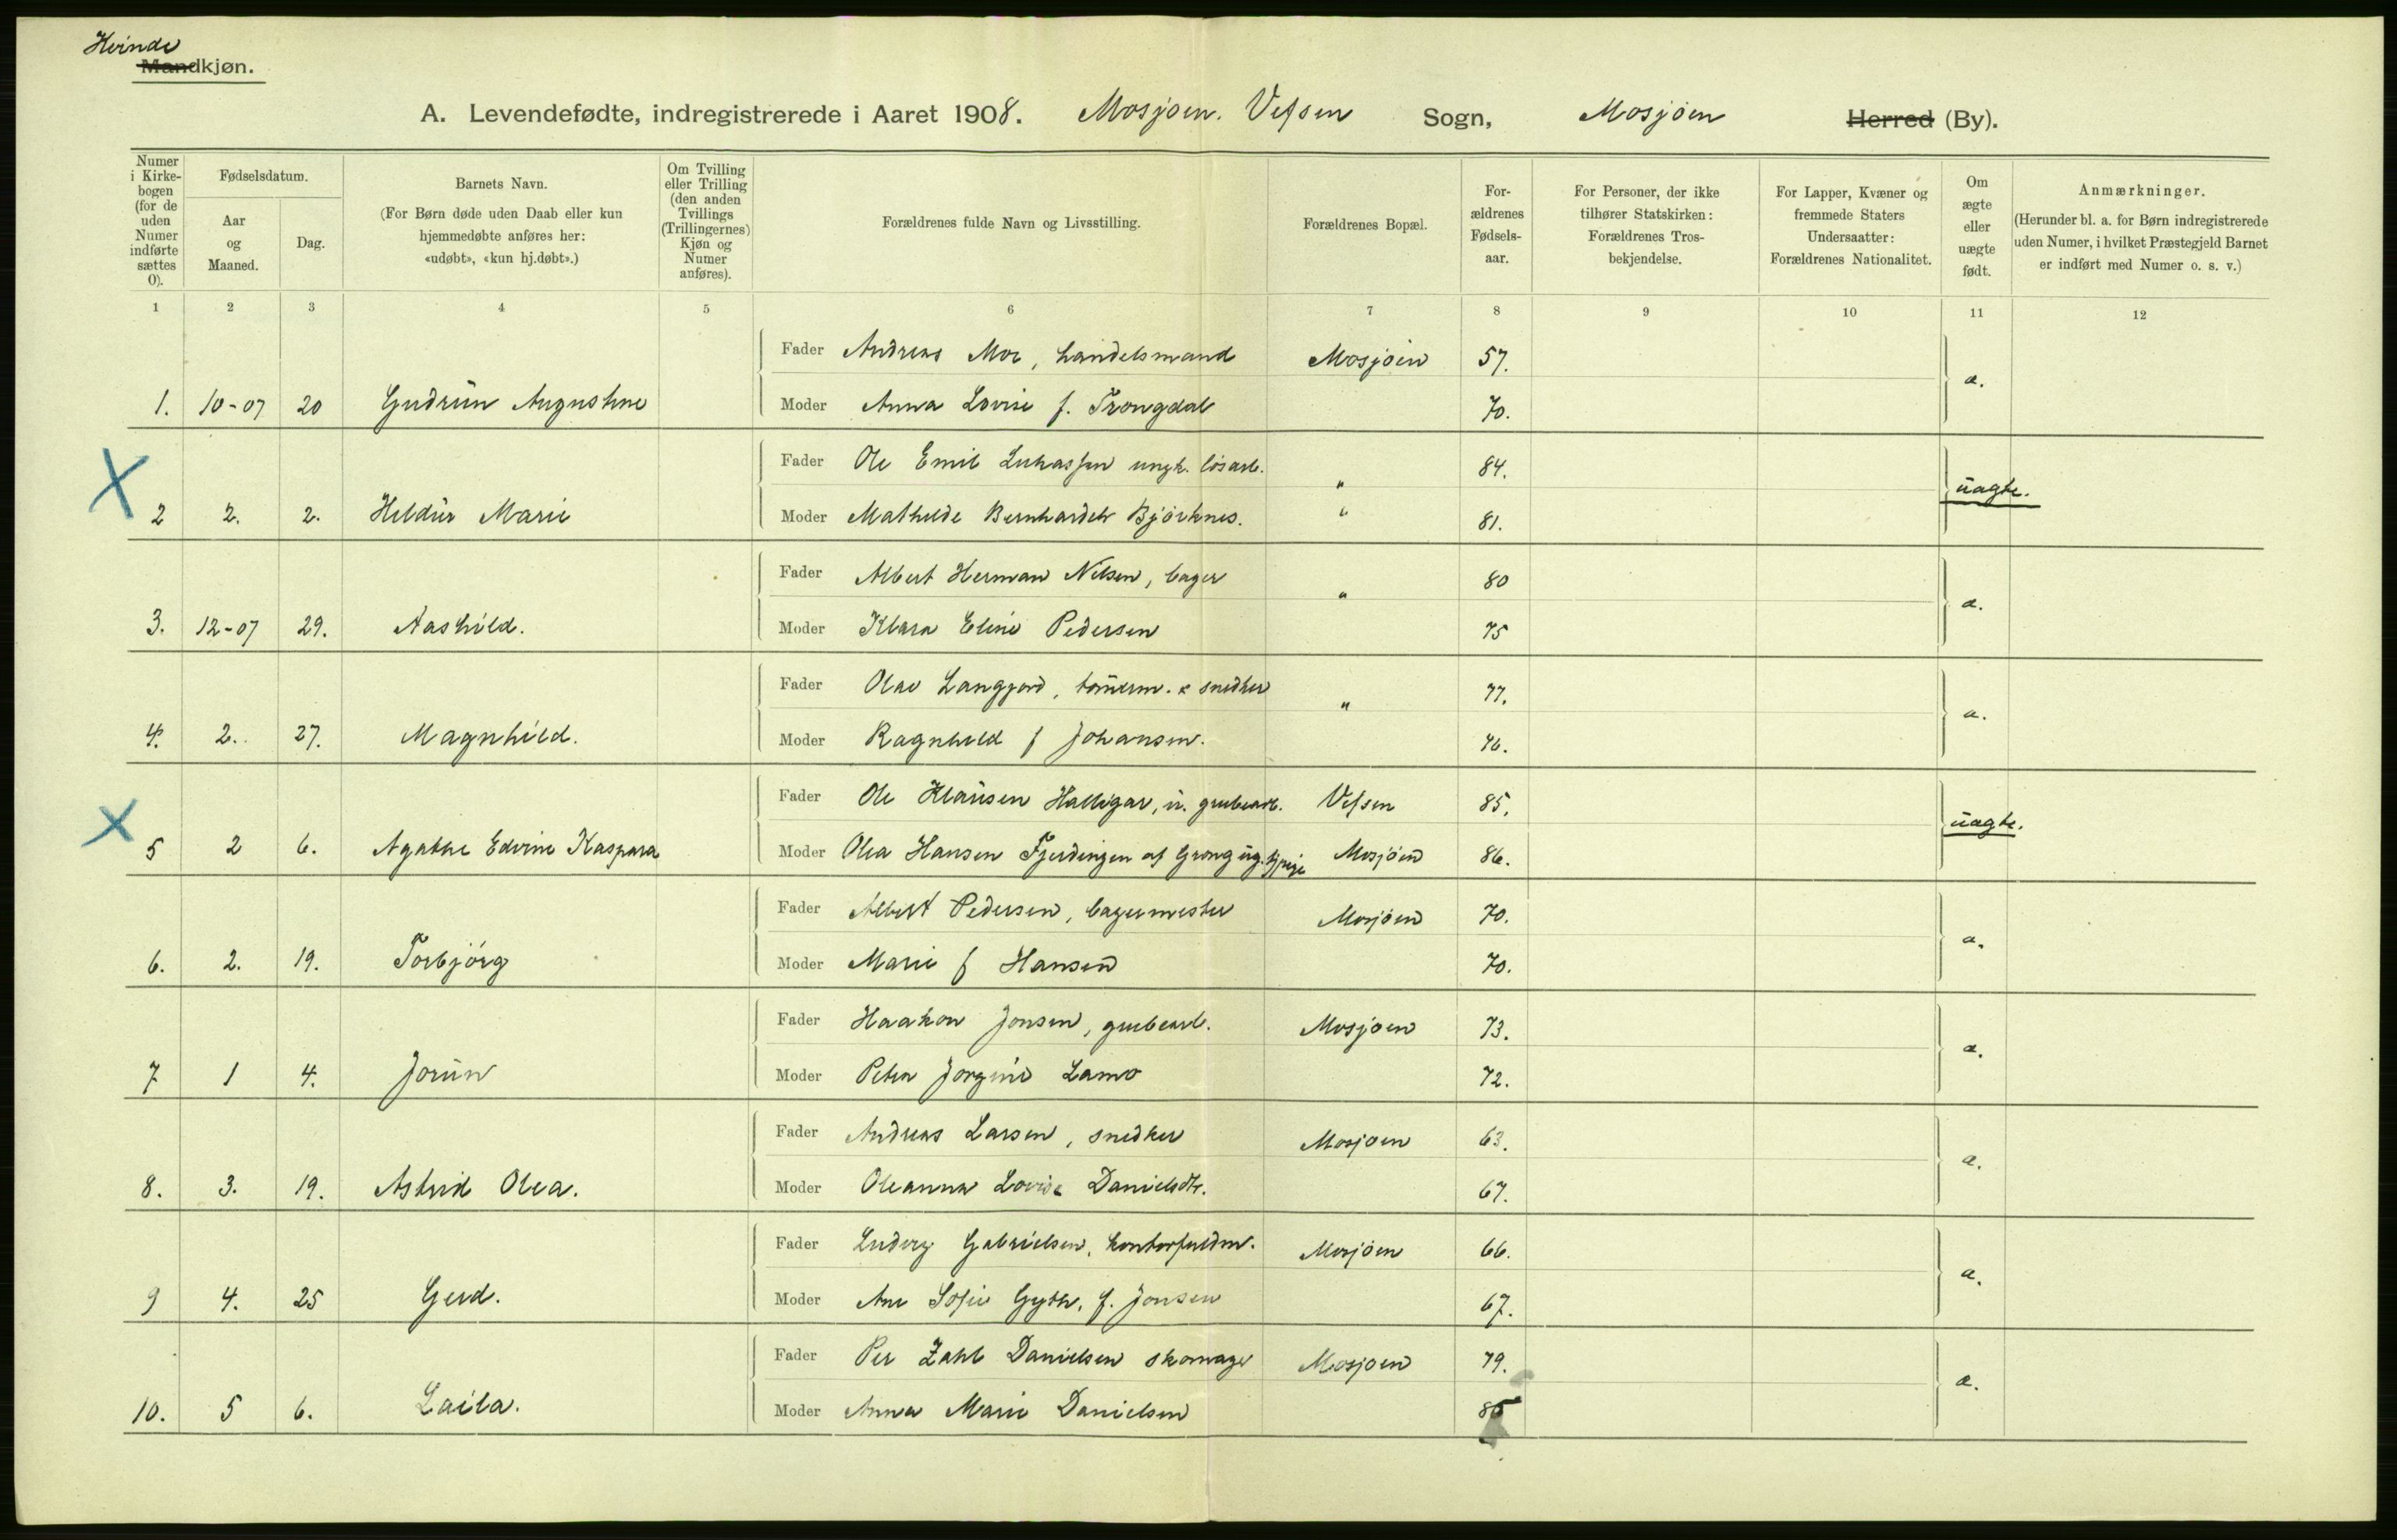 Kvinde
Mandkjøn.
A. Levendefødte, indregistrerede i Aaret 1908. Mosjøen. Vefsen Sogn, Mosjøen Herred (By).
Numer i Kirke-bogen (for de uden Numer indførte sættes 0).
Fødselsdatum.
Aar og Maaned.
Dag.
Barnets Navn.
(For Børn døde uden Daab eller kun hjemmedøbte anføres her: «udøbt», «kun hj.døbt».)
Om Tvilling eller Trilling (den anden Tvillings (Trillingernes) Kjøn og Numer anføres).
Forældrenes fulde Navn og Livsstilling.
Forældrenes Bopæl.
For-ældrenes Fødsels-aar.
For Personer, der ikke tilhører Statskirken: Forældrenes Tros-bekjendelse.
For Lapper, Kvæner og fremmede Staters Undersaatter: Forældrenes Nationalitet.
Om ægte eller uægte født.
Anmærkninger.
(Herunder bl. a. for Børn indregistrerede uden Numer, i hvilket Præstegjeld Barnet er indført med Numer o. s. v.)
1 2 3 4 5 6 7 8 9 10 11 12
Fader Andreas Moe, handelsmand Mosjøen 57.
1. 10-07 20 Gudrun Augustine Moder Anna Lovise f. Trongdal 70. æ.
Fader Ole Emil Lukassen ungk. løsarb. " 84.
X 2 2. 2. Hildur Marie Moder Mathilde Bernhardch Bjørknes. " 81. uægte.
Fader Albert Herman Nilsen, bager " 80
3. 12-07 29. Aashild. Moder Klara Eline Pedersen 75 æ.
Fader Olav Langjord, tømerm. & snedker " 77.
4. 2. 27. Magnhild. Moder Ragnhild f Johansen. 76. æ.
Fader Ole Klausen Halligar, u. grubearb. Vefsen 85.
X 5 2 6. Agathe Edvine Kaspara Moder Olea Hansen Fjerdingen af Grong ug. tjpige Mosjøen 86. uægte.
Fader Albert Pedersen, bagermester Mosjøen 70.
6. 2. 19. Torbjørg Moder Marie f Hansen 70. æ.
Fader Haakon Jonsen, grubearb. Mosjøen 73.
7 1 4. Jorun Moder Petra Jorgine Lamo 72. æ.
Fader Andreas Larsen, snedker Mosjøen 63.
8. 3. 19. Astrid Olea. Moder Oleanna Lovise Danielsdtr. 67. æ.
Fader Ludvig Gabrielsen, kontorfuldm. Mosjøen 66.
9 4. 25 Gerd. Moder Ane Sofie Gyth. f. Jonsen 67. æ.
Fader Per Zahl Danielsen skomager Mosjøen 79.
10. 5 6. Laila. Moder Anna Marie Danielsen 85 æ.